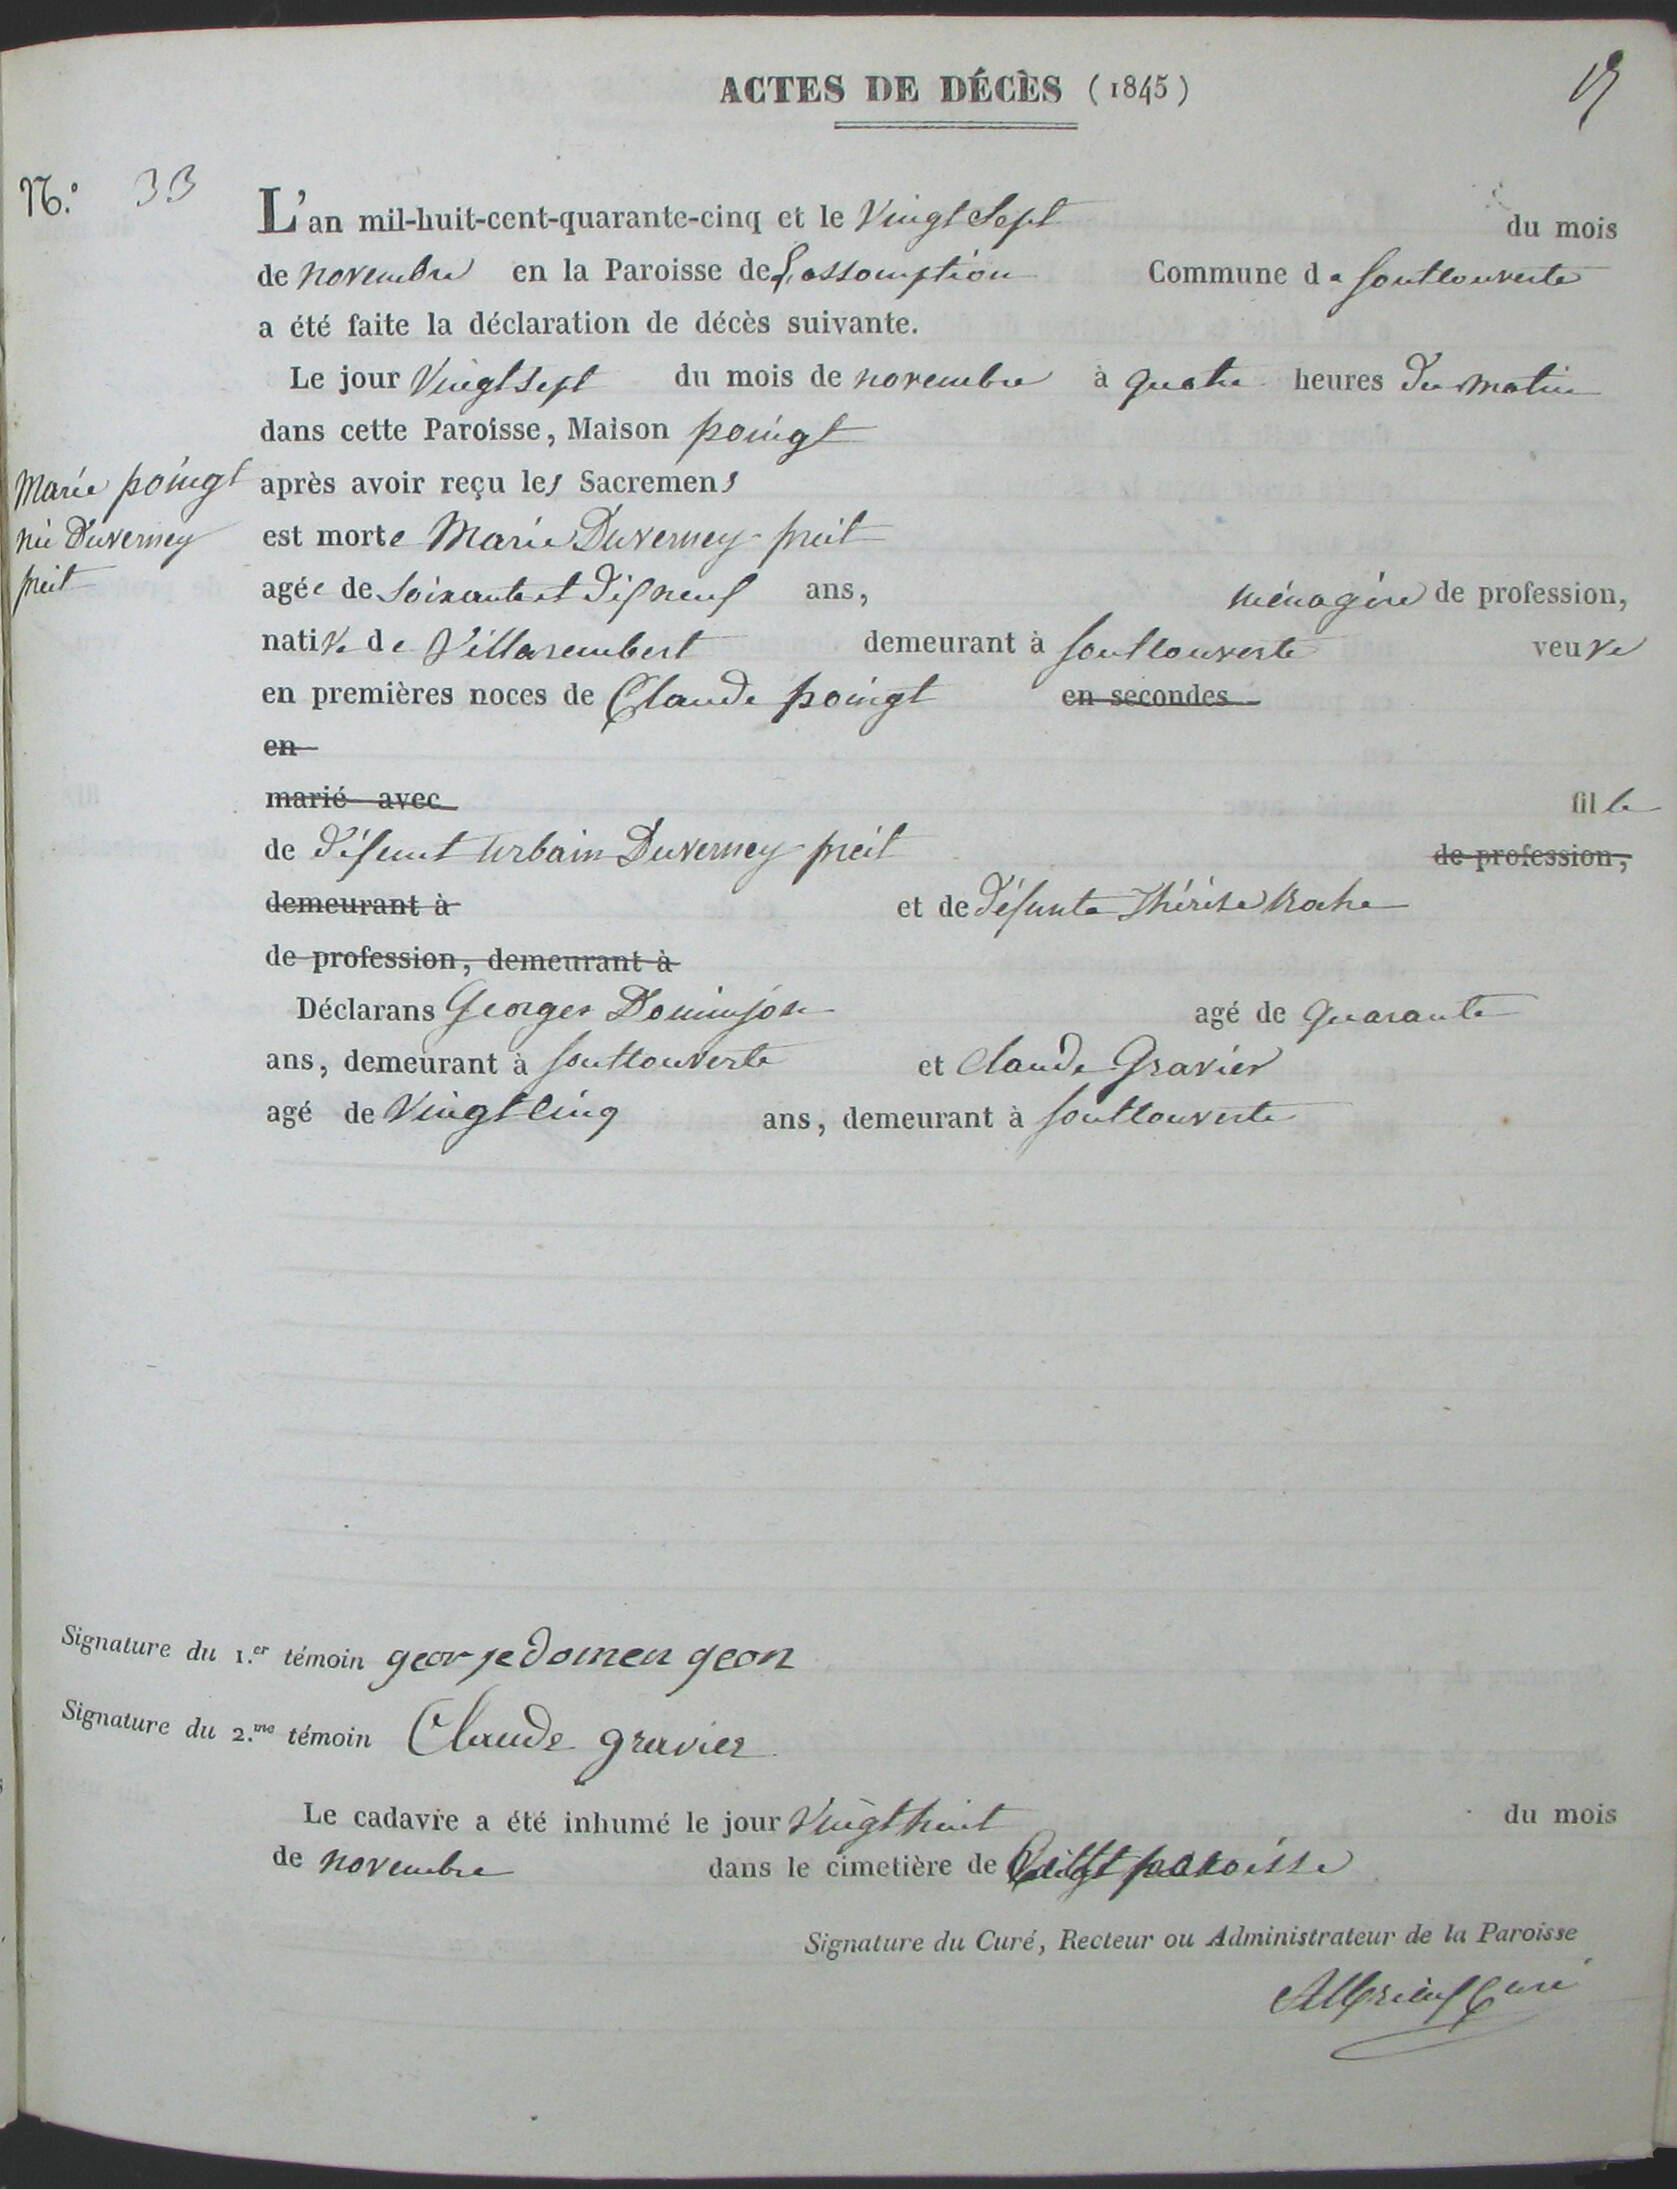 ACTES DE DÉCÈS (1845)
N.º 33
L'an mil-huit-cent-quarante-cinq et le Vingt Sept du mois
de novembre en la Paroisse de L'assomption Commune de fontcouverte
a été faite la déclaration de décès suivante.
Le jour Vingt Sept du mois de novembre à quatre heures du matin
dans cette Paroisse, Maison poingt
Marie poingt
née Duverney
preit
après avoir reçu les Sacremens
est morte Marie Duverney-preit
agée de soixante et dix neuf ans, ménagère de profession,
native de Villarembert demeurant à fontcouverte veuve
en premières noces de Claude poingt en secondes
en
marié avec fille
de défunt Urbain Duverney-preit de profession,
demeurant à et de défunte Thérèse Roche
de profession, demeurant à
Déclarans Georges Dominjon agé de quarante
ans, demeurant à fontcouverte et Claude Gravier
agé de Vingt cinq ans, demeurant à fontcouverte
Signature du 1.er témoin georje domen geon
Signature du 2.me témoin Claude gravier
Le cadavre a été inhumé le jour Vingt huit du mois
de novembre dans le cimetière de paroisse
Signature du Curé, Recteur ou Administrateur de la Paroisse
Curé